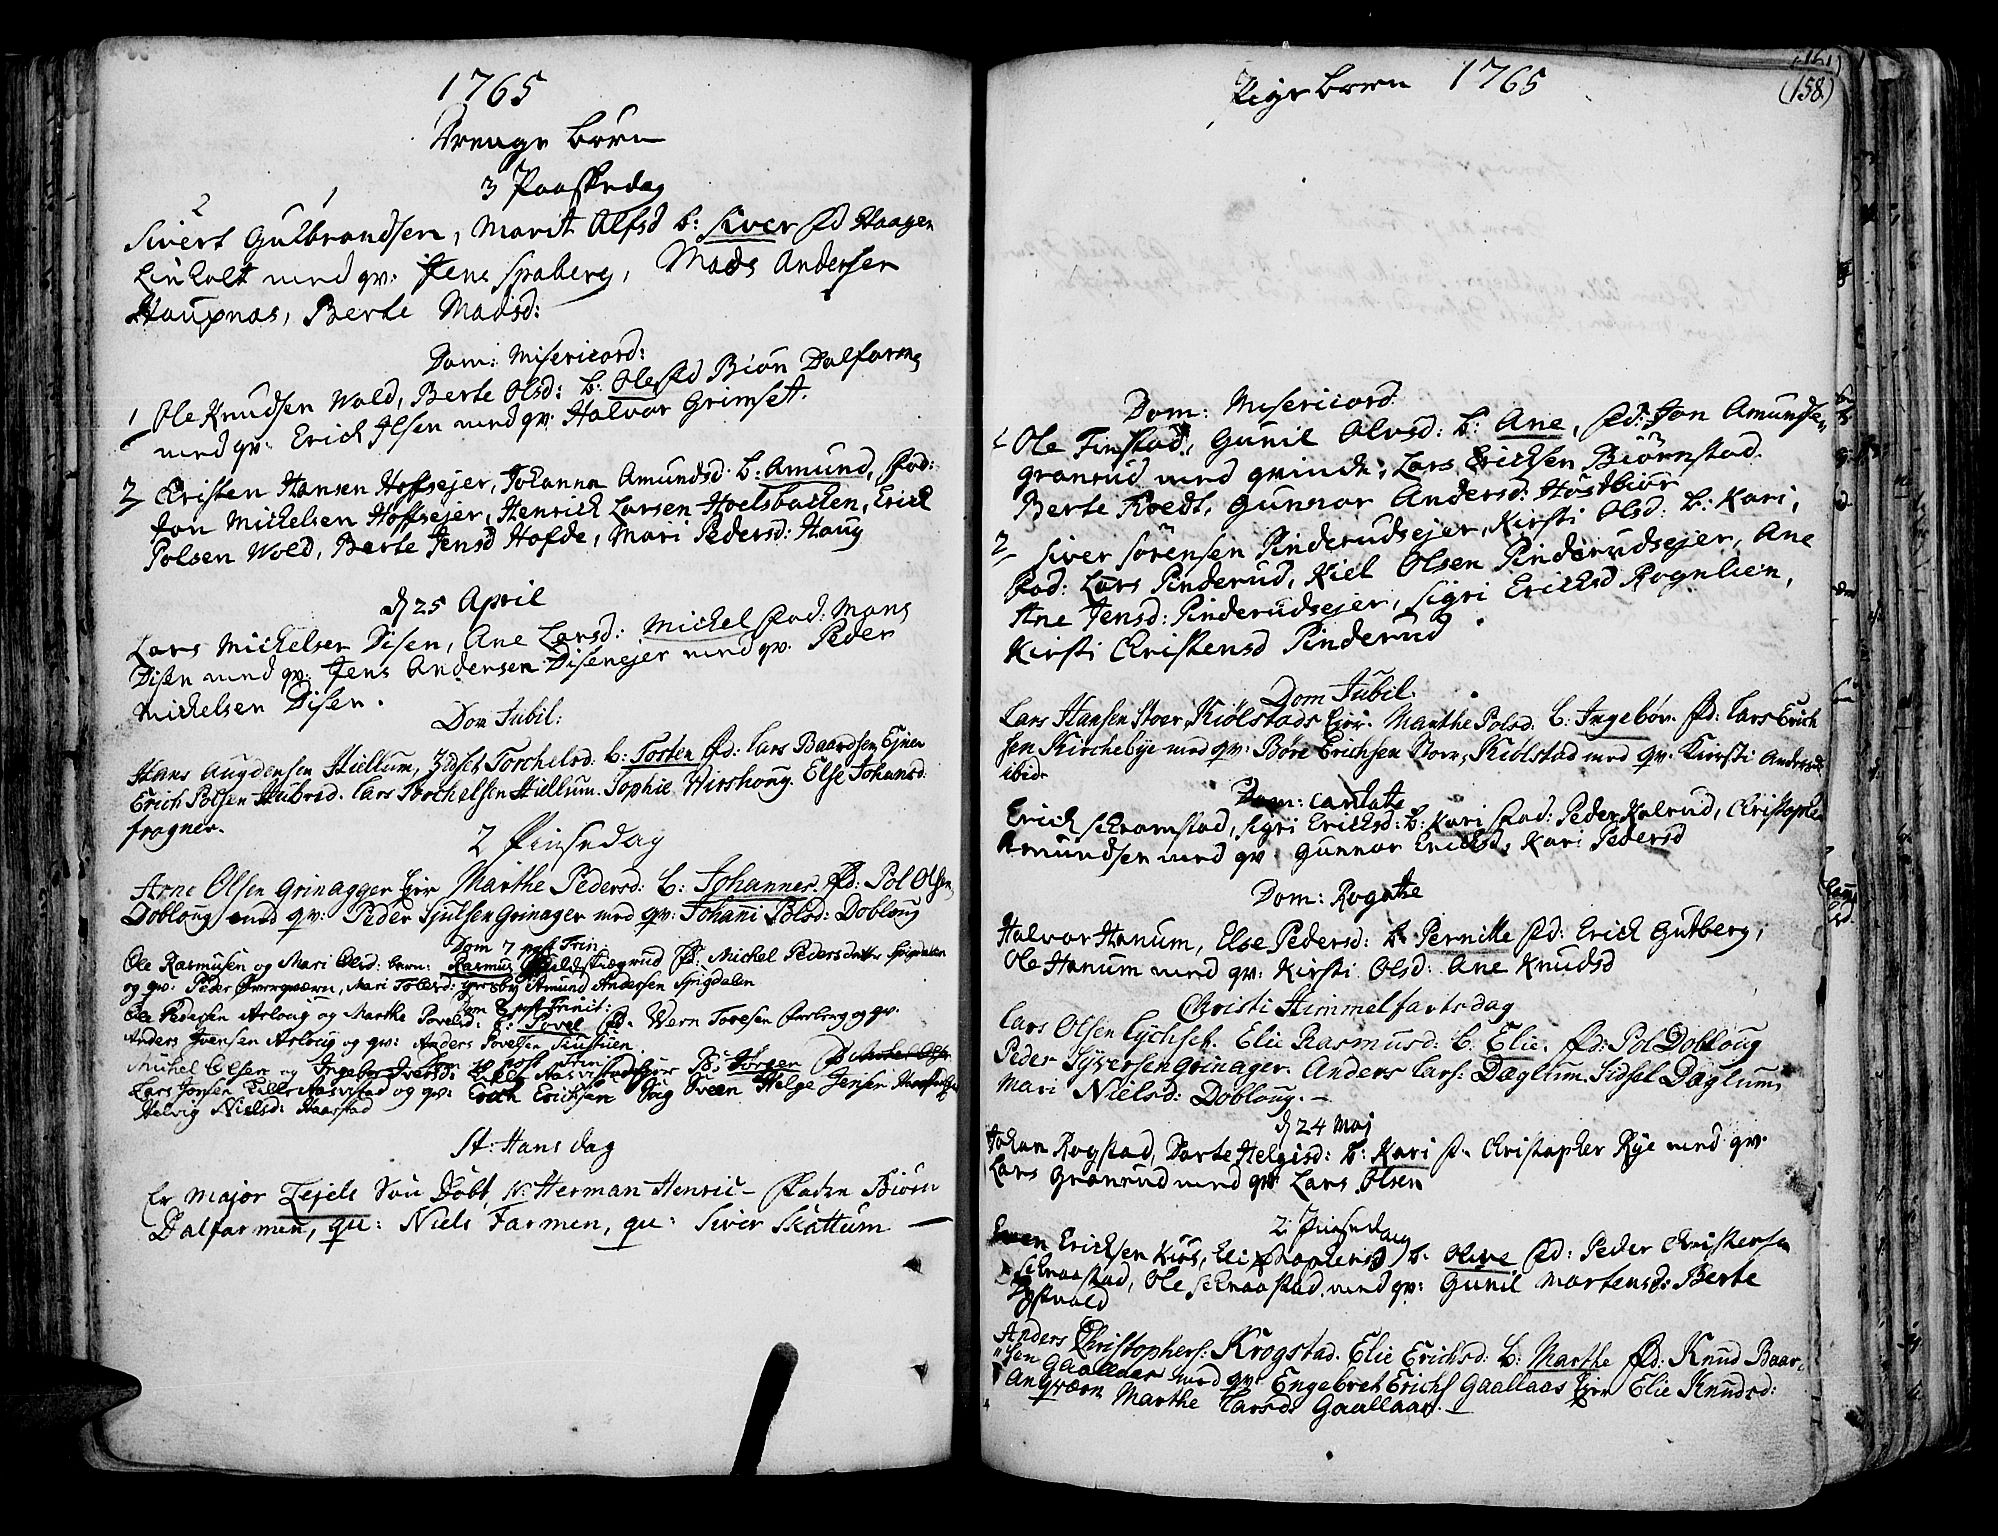 1765
Drenge børn
3 Paaskedag
2 1
Sivert Gulbrandsen, Marit Olfsd b: Siver fad Haagen
Linholt med qv: Jens Spaberg, Mads Andersen
Haupnas, Berte Madsd:
Dom: Misericord:
1 Ole Knudsen Wold, Berte Olsd: b: Ole fad Biøn Dalfarm
med qv: Erich Ilsen med qv: Halvor Grimset.
2 Christen Hansen Hoffsejer, Johanna Amundsd b: Amund, fad:
Jon Michelsen Hoffsejer, Henrich Larsen Hoelsbachen, Erich
Polsen Wold, Berte Jensd Hofde, Mari Pedersd: Haug
d 25 April
Lars Michelsen Disen, Ane Larsd: Michel fad: Mons
Disen med qv: Jens Andersen Disenejer med qv: Peder
Michelsen Disen.
Dom Jubil:
Hans Augdensen Hiellum, Zidsel Torchelsd: b: Torten fd: Lars Baardsen Ejner
Erich Polsen Hubred. Lars Torchelsen Hiellum. Sophie Hirshoug. Else Johansd:
fragner.
2 Pinsedag
Arne Olsen Grinagger Ejer Marthe Pedersd: b: Johannes. fd: Pol Olsen
Dobloug med qv: Peder Sjulsen Grinager med qv: Johanni Polsd: Dobloug
Dom 7 post Trin:
Ole Rasmusen og Mari Olsd: barn: Rasmus fd: Michel Pedersdatter Spigdalen
og qv: Peder Øverqværn, Mari Tolersd: Amund Andersen Spigdalen
Dom 8 post Trinit:
Ole Pedersen Asloug og Marthe Povelsd: b: Povel fd: Wern Toresen og qv.
Anders Iversen Asloug og qv: Anders Povelsen
post Trin
Michel Olsen og Ingebor Iversd: B: Jørgen
Lars Jonsen og qv: Erich Erichsen Helge Jensen
Helvig Nielsd: Haarstad
St: Hans dag
Er Major Zejels Søn Døbt, N: Herman Henric – Faden Biørn
Dalfarmen, qu: Niels Farmen, qu: Siver Skattum —
Pige børn 1765
(158)
Dom: Misericord:
1 Ole Finstad, Gunil Olvsd: b: Ane, fd: Jon Amundse
granrud med qvinde, Lars Erichsen Biørnstad.
Berte Roedt, Gunnor Andersd: Høstbiør
2 Siver Sørensen Pinderudsejer, Kirsti Olsd: b: Kari,
fad: Lars Pinderud, Kiel Olsen Pinderudsejer, Ane
Ane Jensd: Pinderudsejer, Sigri Erichsd Rognlien,
Kirsti Christensd Pinderud
Dom Jubil.
Lars Hansen Stoer Kiølstads Ejer. Marthe Polsd. b. Ingebør. fd: Lars Erich
sen Kirchebye med qv: Børe Erichsen Stoer, Kiølstad med qv. Kiersti Andersd
ibid.
Dom: Cantate
Erich Schramstad, Sigri Erichsd: b: Kari fad: Peder Kalrud, Christophe
Amundsen med qv. Gunnor Erichsd, Kari Pedersd
Dom: Rogate
Halvor Hanum, Else Pedersd: b: Pernille fd: Erich Gutberg,
Ole Hanum med qv: Kirsti Olsd: Ane Knudsd
Christi Himmelfartsdag
Lars Olsen Lychset. Elie Rasmusd: b: Elie. fd: Pol Dobloug
Peder Syversen Grinager. Anders Lars: Dæglum. Sidsel Dæglum,
Mari Nielsd: Dobloug. —
d 24 Maj
Johan Rogstad, Dorte Helgesd: b: Kari f. Christopher Rye med qv.
Lars Granrud med qv Lars Olsen
2 Pinsedag
Even Erichsen Kiøs, Eli b. Olive fd: Peder Christensen
Schraastad, Ole Schraastad med qv: Gunil Mortensd: Berte
Ystvold
Anders Christophers: Krogstad. Elie Erichsd: b: Marthe fd: Knud Baar-
sen Gaallaas med qv: Engebret Erichs Gaallaas Ejer Elie Knudsd:
Angværn Marthe Larsd: Gaallaas. —